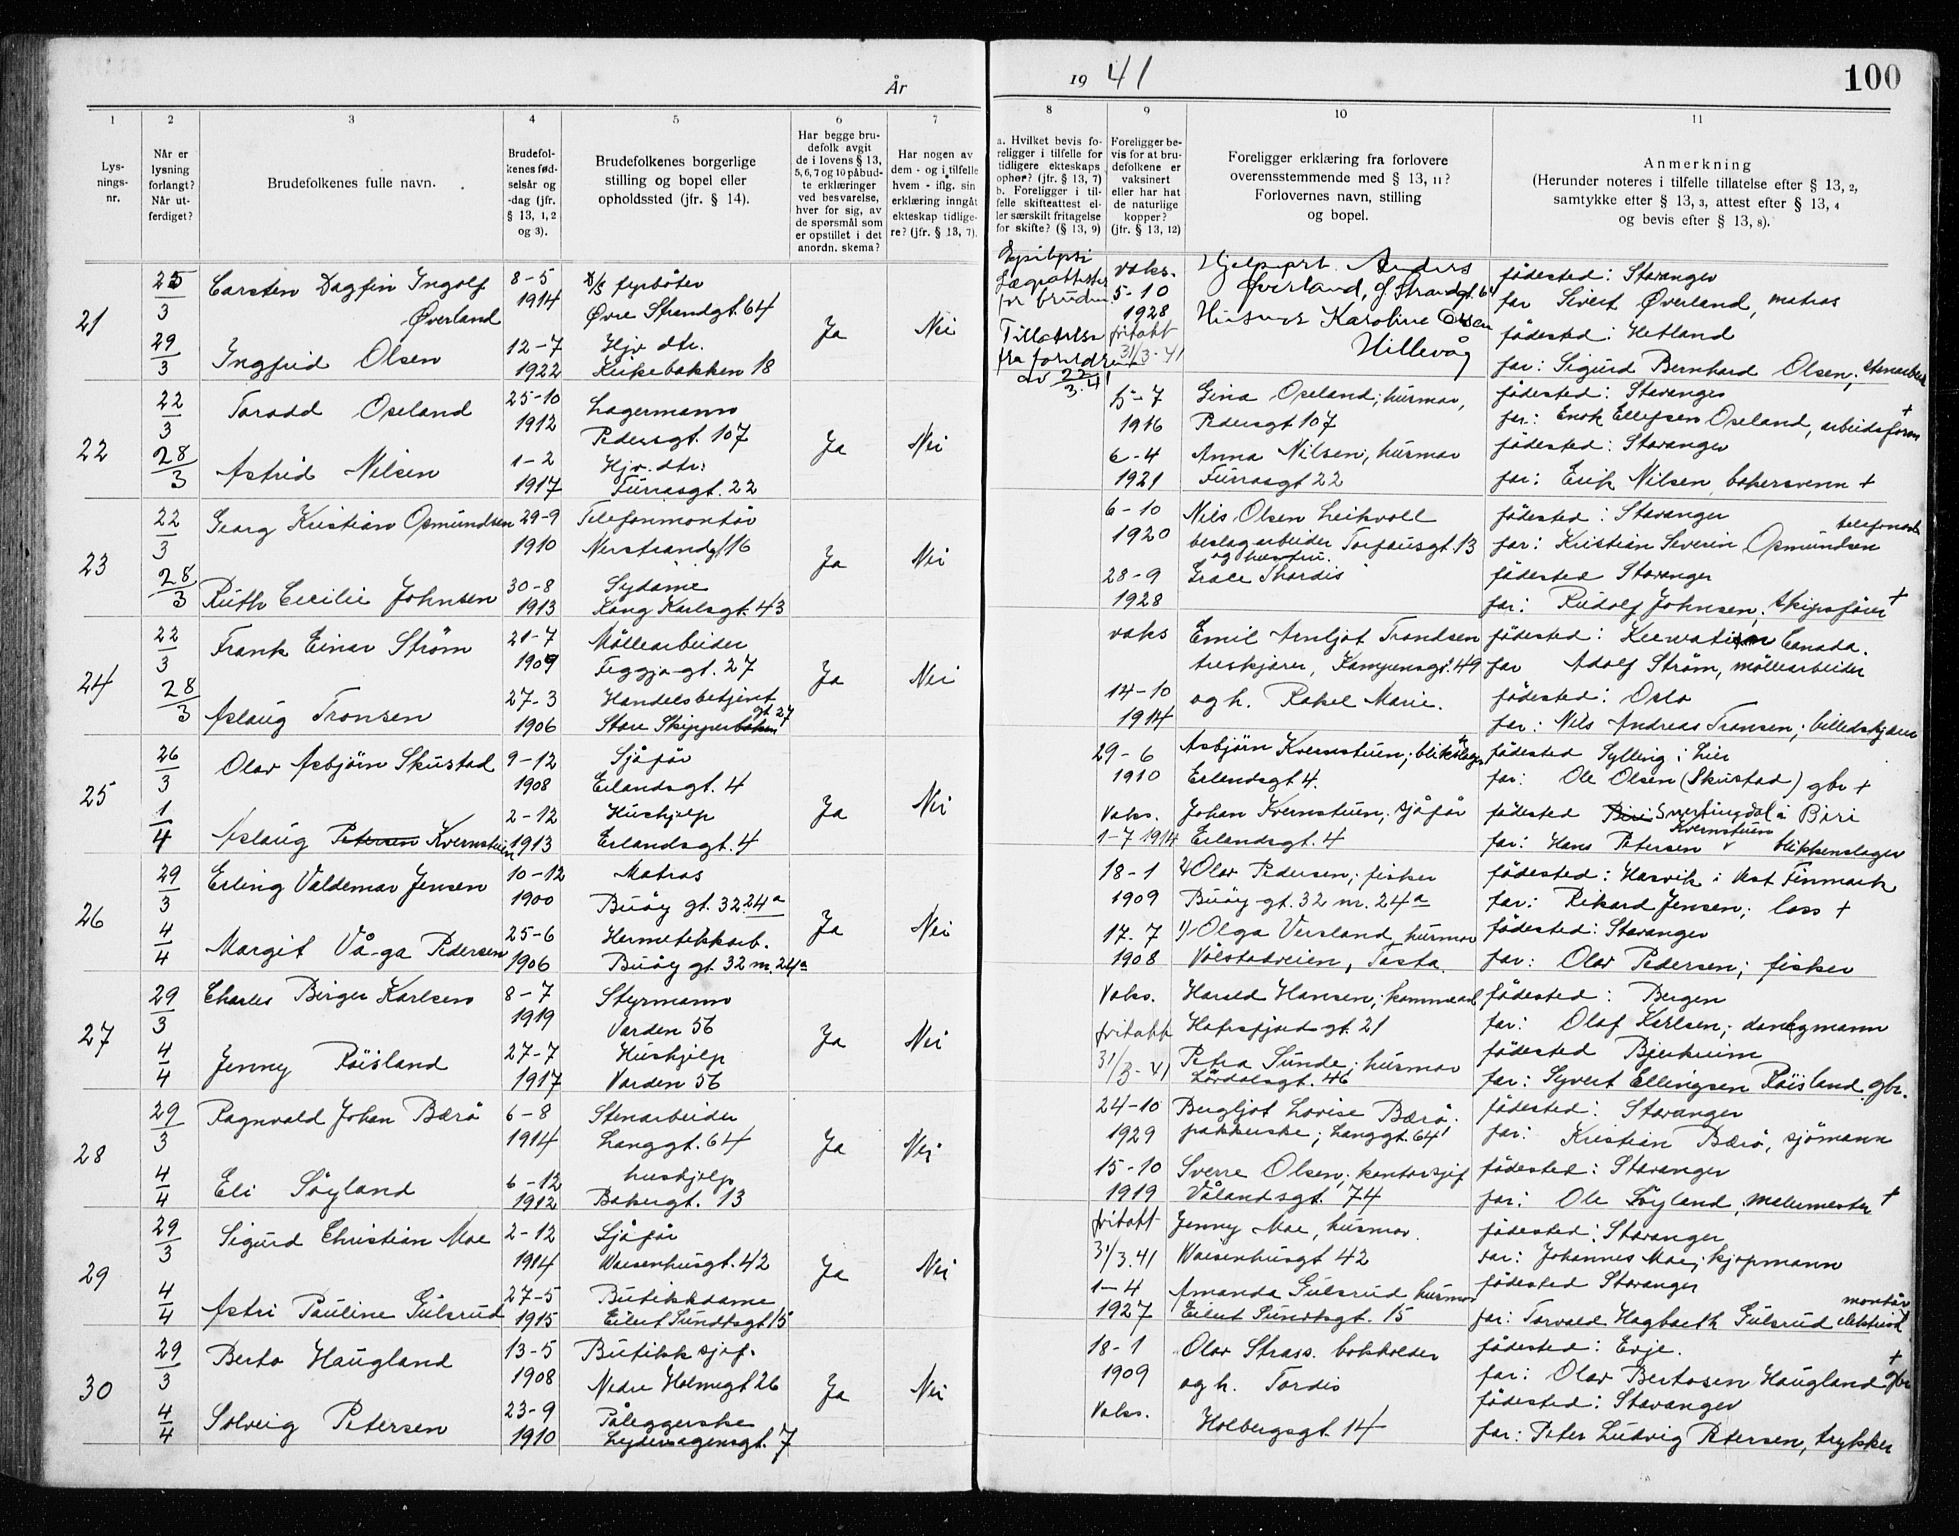 År
19 41
100
1
2
3
4
5
6
7
8
9
10
11
Lys-
nings-
nr.
Når er
lysning
forlangt?
Når ut-
ferdiget?
Brudefolkenes fulle navn.
Brudefol-
kenes fød-
selsår og
-dag (jfr.
§ 13, 1, 2
og 3).
Brudefolkenes borgerlige
stilling og bopel eller
opholdssted (jfr. § 14).
Har begge bru-
defolk avgit
de i lovens § 13,
5, 6, 7 og 10 påbud-
te erklæringer
ved besvarelse,
hver for sig, av
de spørsmål som
er opstillet i det
anordn. skema?
Har nogen av
dem - og i tilfelle
hvem - iflg. sin
erklæring inngåt
ekteskap tidlige-
re? (jfr. § 13, 7).
a. Hvilket bevis fo-
religger i tilfelle for
tidligere ekteskaps
ophør? (jfr. § 13, 7)
b. Foreligger i til-
felle skifteattest el-
ler særskilt fritagelse
for skifte? (§ 13, 9)
Foreligger be-
vis for at bru-
defolkene er
vaksinert
eller har hat
de naturlige
kopper?
(jfr. § 13, 12)
Foreligger erklæring fra forlovere
overensstemmende med § 13, 11?
Forlovernes navn, stilling
og bopel.
Anmerkning
(Herunder noteres i tilfelle tillatelse efter § 13, 2,
samtykke efter § 13, 3, attest efter § 13, 4
og bevis efter § 13, 8).
21
25/3
29/3
Carsten Dagfin Ingolf
Øverland
Ingfrid Olsen
8-5
1914
12-7
1922
D/S fyrbøter
Øvre Strandgt. 64
Hjv. dtr.
Kirkebakken 18
Ja
Nei
Epilepsi
Lægeattester
for bruden
Tillatelse
fra foreldre
av 22/3.41
vaks.
5-10
1928
fritatt
31/3-41
Hjelpeprt. Anders
Øverland, Ø Strandgt. 64
Husmor Karoline Olsen
Hillevåg
födested: Stavanger
far Sivert Øverland, matros
födested: Hetland
far: Sigurd Bernhard Olsen; stenarbeid
22
22/3
28/3
Toradd Oseland
Astrid Nilsen
25-10
1912
1-2
1917
Lagermann
Pedersgt. 107
Hjv. dtr.
Furrasgt. 22
Ja
Nei
15-7
1916
6-4
1921
Gina Oseland; husmor,
Pedersgt 107
Anna Nilsen; husmor
Furrasgt 22
födested: Stavanger
far: Enok Ellefsen Oseland, arbeidsform +
födested: Stavanger
far: Erik Nilsen bakersvenn +
23
22/3
28/3
Georg Kristian Osmundsen
Ruth Cecilie Johnsen
29-9
1910
30-8
1913
Telefonmontör
Nerstrandgt 16
Sydame
Kong Karlsgt. 43
Ja
Nei
6-10
1920
28-9
1928
Nils Olsen Leikvoll
beslagarbeider Torfæusgt. 13
og hustru.
Grace Thordis
födested: Stavanger
far: Kristian Severin Osmundsen
födested Stavanger
far: Rudolf Johnsen, skipsfører +
24
22/3
28/3
Frank Einar Ström
Aslaug Tronsen
21-7
1909
27-3
1906
Møllearbeider
Figgjo-gt. 27
Handelsbetjent
Store Skippergt. 27
Ja
Nei
vaks
14-10
1914
Emil Arnljot Trondsen
treskjærer, Kampensgt. 49
og h. Rakel Marie.
födested: Keewatin Canada.
far Adolf Ström, møllearbeider
födested: Oslo
far: Nils Andreas Tronsen; billedskjærer
25
26/3
1/4
Olav Asbjörn Skustad
Aslaug Petersen Kvernstuen
9-12
1908
2-12
1913
Sjåfør
Erlandsgt. 4
Hushjelp
Erlandsgt. 4
Ja
Nei
29-6
1910
Vaks.
1-7 1914
Asbjörn Kvernstuen; blikslager
Erlandsgt 4.
Johan Kvernstuen; sjåfør
Erlandsgt. 4
födested Sylling i Lier
far: Ole Olsen (Skustad) gbr +
födested Biri Snertingdal i Biri
Kvernstuen
far: Hans Petersen v blikkenslager
26
29/3
4/4
Erling Valdemar Jensen
Margit Vå-ga Pedersen
10-12
1900
25-6
1906
Matros
Buöy gt. 32 24a
Hermetikkarb.
Buöy gt. 32 nr. 24a
Ja
Nei
18-1
1909
17-7
1908
2/ Olav Pedersen; fisker
Buöy-gt. 32 nr. 24a
1/ Olga Versland, husmor
Vålstadveien, Tasta.
födested: Hasvik i Vest Finmark
far: Rikard Jensen; loss +
födested: Stavanger
far: Olav Pedersen; fisker
27
29/3
4/4
Charles Birger Karlsen
Jenny Röisland
8-7
1919
27-7
1917
Styrmann
Varden 56
Hushjelp
Varden 56
Ja
Nei
Vaks.
fritatt
31/3-41
Harald Hansen; kommearb
Hafrsfjordgt. 21
Petra Sunde; husmor
Lårdalsgt. 46
födested: Bergen
far: Olaf Karlsen;
födested Bjerkreim
far: Syvert Ellingsen Röisland gbr.
28
29/3
4/4
Ragnvald Johan Bærö
Eli Söyland
6-8
1914
6-12
1912
Stenarbeider
Langgt. 64
hushjelp
Bakergt. 13
Ja
Nei
24-10
1929
15-10
1919
Bergljot Lovise Bærö.
pakkerske; Langgt. 64
Sverre Olsen; kontorsjef
Vålandsgt. 74
födested: Stavanger
far: Kristian Bærö, sjömann
födested: Stavanger
far: Ole Söyland, malermester +
29
29/3
4/4
Sigurd Christian Moe
Astri Pauline Gulsrud
2-12
1914
27-5
1915
Sjåfør
Waisenhusgt. 42
Butikkdame
Eilert Sundtsgt 15
Ja
Nei
fritatt
31/3.41
1-4
1927
Jenny Moe, husmor.
Waisenhusgt 42
Amanda Gulsrud husmor
Eilert Sundtsgt. 15
födested: Stavanger
far: Johannes Moe; kjøpmann
födested Stavanger
far: Torvald Hagbarth Gulsrud elektrisk montör
30
29/3
4/4
Berto Haugland
Solveig Petersen
13-5
1908
23-9
1910
Butikksjef.
Nedre Holmegt 26
Påleggerske
Lyder Sagensgt. 7
Ja
Nei
18-1
1909
Vaks.
Olav Strass. bokholder
og h. Tordis
Holbergsgt. 14
födested: Evje.
far: Olav Bertosen Haugland gbr +
födested: Stavanger
far: Peter Ludvig Petersen, trykker